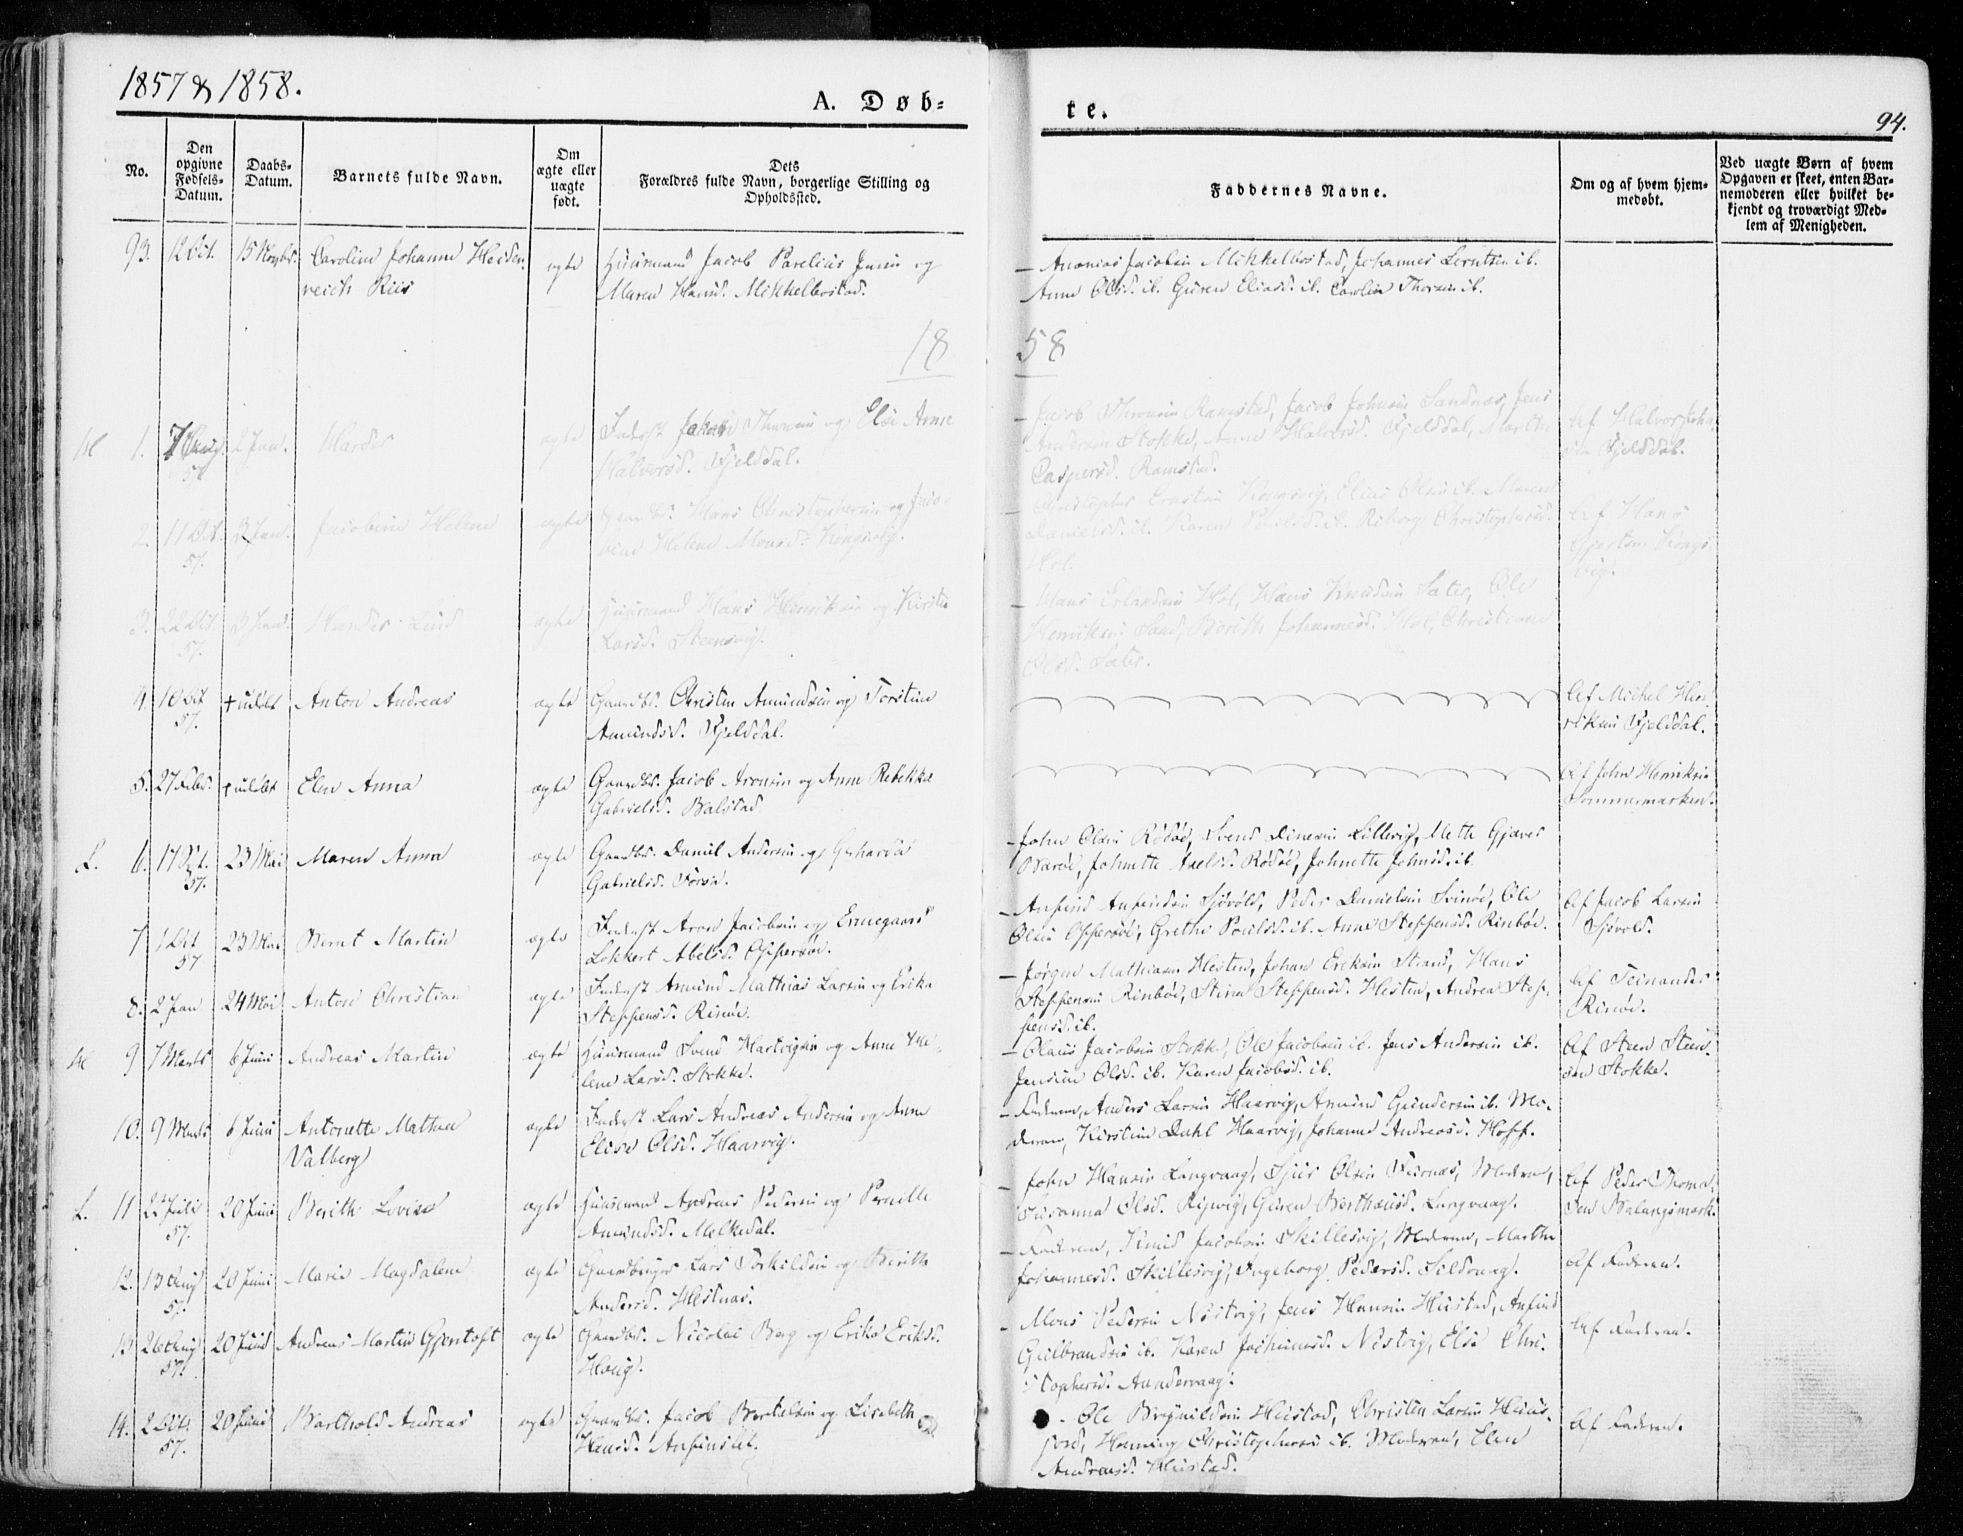 1857 & 1858.
A. Døb-
te.
94.
No.
Den opgivne Fødsels-Datum.
Daabs-Datum.
Barnets fulde Navn.
Om ægte eller uægte født.
Dets Forældres fulde Navn, borgerlige Stilling og Opholdssted.
Faddernes Navne.
Om og af hvem hjem-medøbt.
Ved uægte Børn af hvem Opgaven er skeet, enten Bar-nemoderen eller hvilket be-kjendt og troværdigt Med-lem af Menigheden.
93. 12 Oct. 15 Novbr. Caroline Johanne Heiden-
reich Riis
ægte
Huusmand Jacob Parelius Jensen og
Maren Hansd. Mikkelbostad.
Ananias Jacobsen Mikkelbostad, Johannes Berntsen ib.
Anne Olsd. ib. Guren Eliasd. ib. Caroline Thorsen ib.
18
58
1. 2 Jan.
ægte
Inderst Jakob Thorsen og Else Anne
Halvorsd. Fjelddal.
Jacob Thronsen Ramstad, Jacob Johnsen Sandnæs, Jens
Andersen Stokke, Anne Halvorsd. Fjelddal, Marthe
Caspersd. Ramstad.
Af Halvor John-
sen Fjelddal.
2. 11 Oct. 57. 3 Jan. Jacobine Helene
ægte
Gaardbr. Hans Christophersen og Jaco-
bine Helene Monsd. Kongsvig.
Christopher Kongsvig, Elias Olsen ib. Maren
Danielsd. ib. Karen Poulsd. ib. Christophersd.
Hol.
Af Hans
Gjertsen Kongs-
vig.
3. 22 Oct. 57. 3 Jan.
ægte
Huusmand Hans Henriksen og Kirstin
Larsd. Steensvig.
Hans Erlandsen Hol, Hans Knudsen Sater, Ole
Henriksen Sand, Berith Johannesd. Hol, Christiane
Olsd. Sater.
4. 10 Oct 57. + udøbt Anton Andreas
ægte
Gaardbr. Christen Amundsen og Torstine
Amundsd. Fjelddal.
Af Michel Hen-
riksen Fjelddal.
5. 27 Febr. + udøbt Elen Anna
ægte
Gaardbr. Jacob Aronsen og Anne Rebekka
Gabrielsd. Balstad
Af John Henriksen
Sommermarken.
L. 6. 17 Oct. 57. 23 Mai Maren Anna
ægte
Gaardbr. Daniel Andersen og Gjerharda
Gabrielsd.
John Olsen Rødøe, Svend Dinesen Lillevig, Meth Gjæver
Barøe, Johnette Axelsd. Rødøe, Johnette Johnsd. ib.
7. 1 Oct 57 23 Mai Bernt Martin
ægte
Inderst Aron Jacobsen og Ermegaard
Lokkert Abelsd. Offersøe.
Anfind Anfindsen Sjøvold, Peder Danielsen Svinøe, Ole
Olsen Offersøe, Grethe Poulsd. ib. Anne Steffensd. Rinbøe.
Af Jacob Larsen
Sjøvold.
8. 2 Jan 24 Mai Anton Christian
ægte
Inderst Amund Mathias Larsen og Erika
Steffensd. Rinøe.
Jørgen Mathisen Hesten, Johan Eriksen Strand, Hans
Steffensen Rinbøe, Stina Steffensd. Hesten, Andrea Stef-
fensd. ib.
Rinøe.
9 7 Marts 6 Juni Andreas Martin
ægte
Huusmand Svend Hartvigsen og Anne He-
lene Larsd. Stokke.
Olaus Jacobsen Stokke, Ole Jacobsen ib. Jens Andersen ib.
Jensine Olsd. ib. Karen Jacobsd. ib.
Af Steen Steen-
sen Stokke.
10. 9 Marts 6 Juni Antonette Mathea
Valberg
ægte
Inderst Lars Andreas Andersen og Anne
Elise Olsd. Haarvig.
Faderen, Anders Larsen Haarvig, Amund Gundersen ib. Mo-
deren, Kirstine Dahl Haarvig, Johanne Andreasd. Hoff.
L. 11 22 Juli 57. 20 Juni Berith Lovise
ægte
Huusmand Andreas Pedersen og Pernille
Amundsd. Melkedal.
John Hansen Langvaag, Sjur Olsen Fiurnæs, Moderen,
Susanna Olsd. Guren Berthæusd. Langvaag.
Af Peder Thoma-
sen Balangsmark.
12. 13 Aug 57. 20 Juni Marie Magdalene
ægte
Gaardbruger Lars Torkildsen og Berith
Andersd. Hestnæs.
Faderen, Knud Jacobsen Skillesvig, Moderen, Marthe
Johannesd. Skillesvig, Ingeborg Pedersd. Sildvaag.
Af Faderen.
13 26 Aug 57. 20 Juni Andreas Martin Gjertoft
ægte
Gaardbr. Nicolai Berg og Erika Eriksd.
Haug.
Mons Pedersen Nøstvig, Jens Hansen Hustad, Anfind
Gulbrandsen ib. Karen Jochumsd. Nøstvig, Else Chri-
stophersd. Aundervaag.
Af Faderen.
14. 2 Oct. 57. 20 Juni Barthold Andreas
ægte
Gaardbr. Jacob Bertelsen og Lisabeth
Hansd.
Ole Brynildsen Hustad, Christen Larsen Huus-
jord, Henning Christophersen ib. Moderen, Elen
Andreasd. Hustad.
Af Faderen.